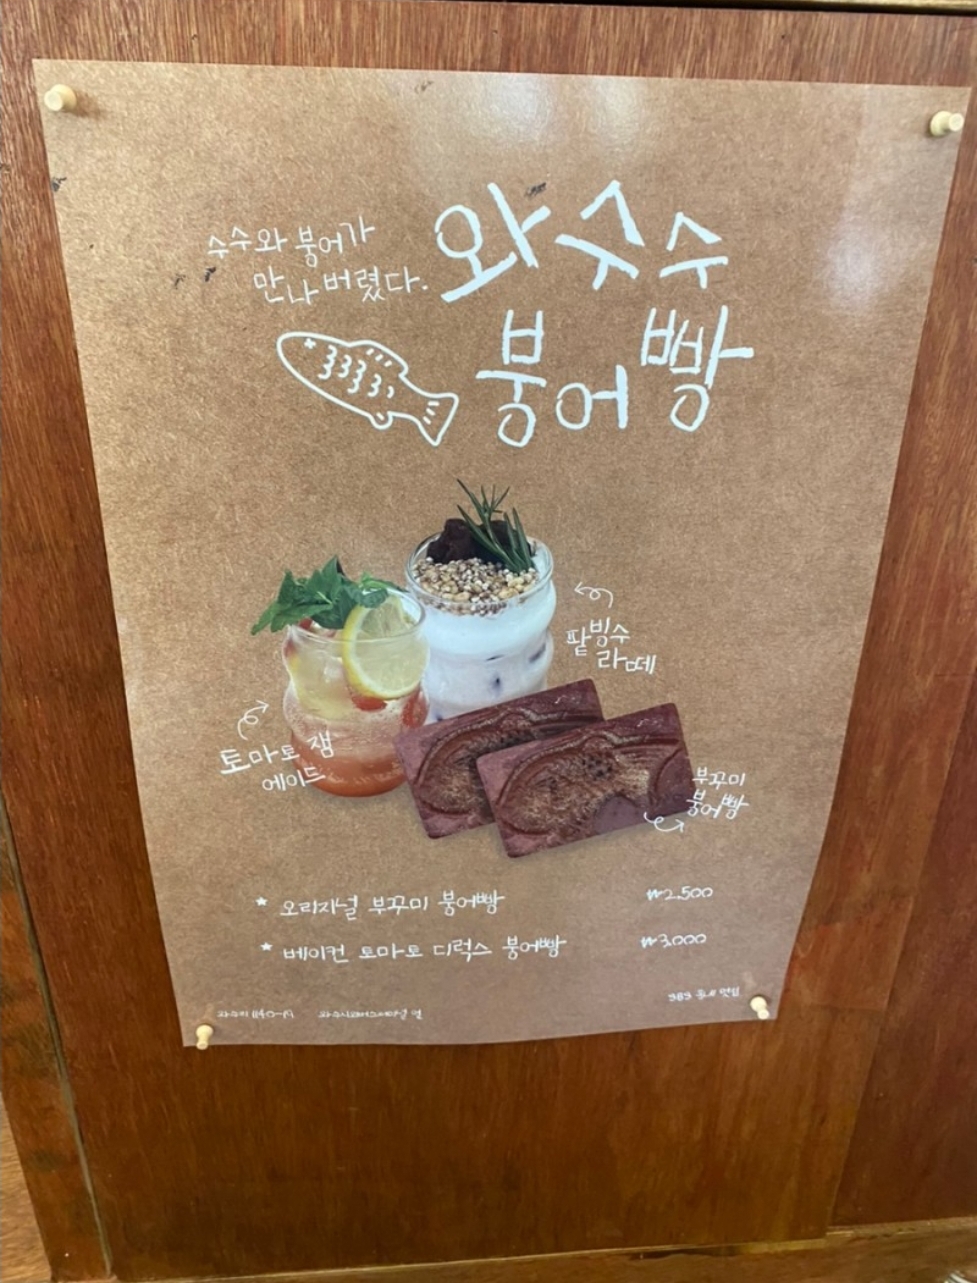 수수와 붕어가
만나버렸다.
와수수
붕어빵
팥빙수
라떼
토마토 잼
에이드
부꾸미
붕어빵
* 오리지널 부꾸미 붕어빵 ₩2,500
* 베이컨 토마토 디럭스 붕어빵 ₩3,000